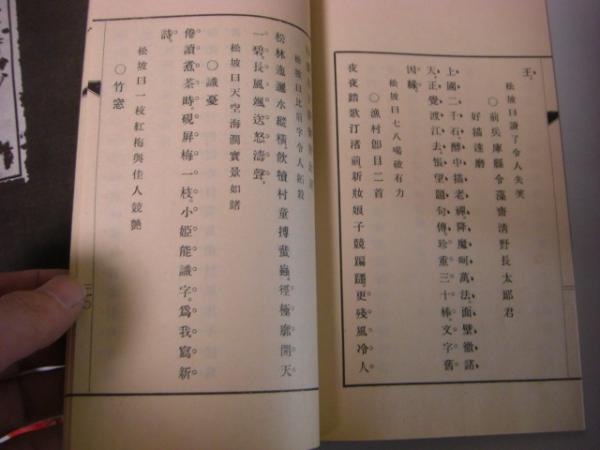 王。
松坡曰讀了令人失笑
〇前兵庫縣令藻齋淸野長太郞君
好描達磨
上國二千石。醉中描老禪。降魔呵萬法。面壁徹諸
天。正覺渡江去。悵望題句傳。珍重三十棒。文字舊
因緣。
松坡曰七八喝破有力
〇漁村卽目二首
夜夜踏歌汀渚前。新妝娘子競蹁躚。更殘風冷人
松坡曰比肩字令人
松林逶邐水縱橫。飮犢村童搏螢蟲。徑極廓開天
一碧。長風颯送怒濤聲。
松坡曰天空海濶實景如睹
〇讖憂
倦讀煮茶時。硯屏梅一枝。小姬能識字。爲我寫新
詩。
松坡曰一枝紅梅與佳人競艷
〇竹窓